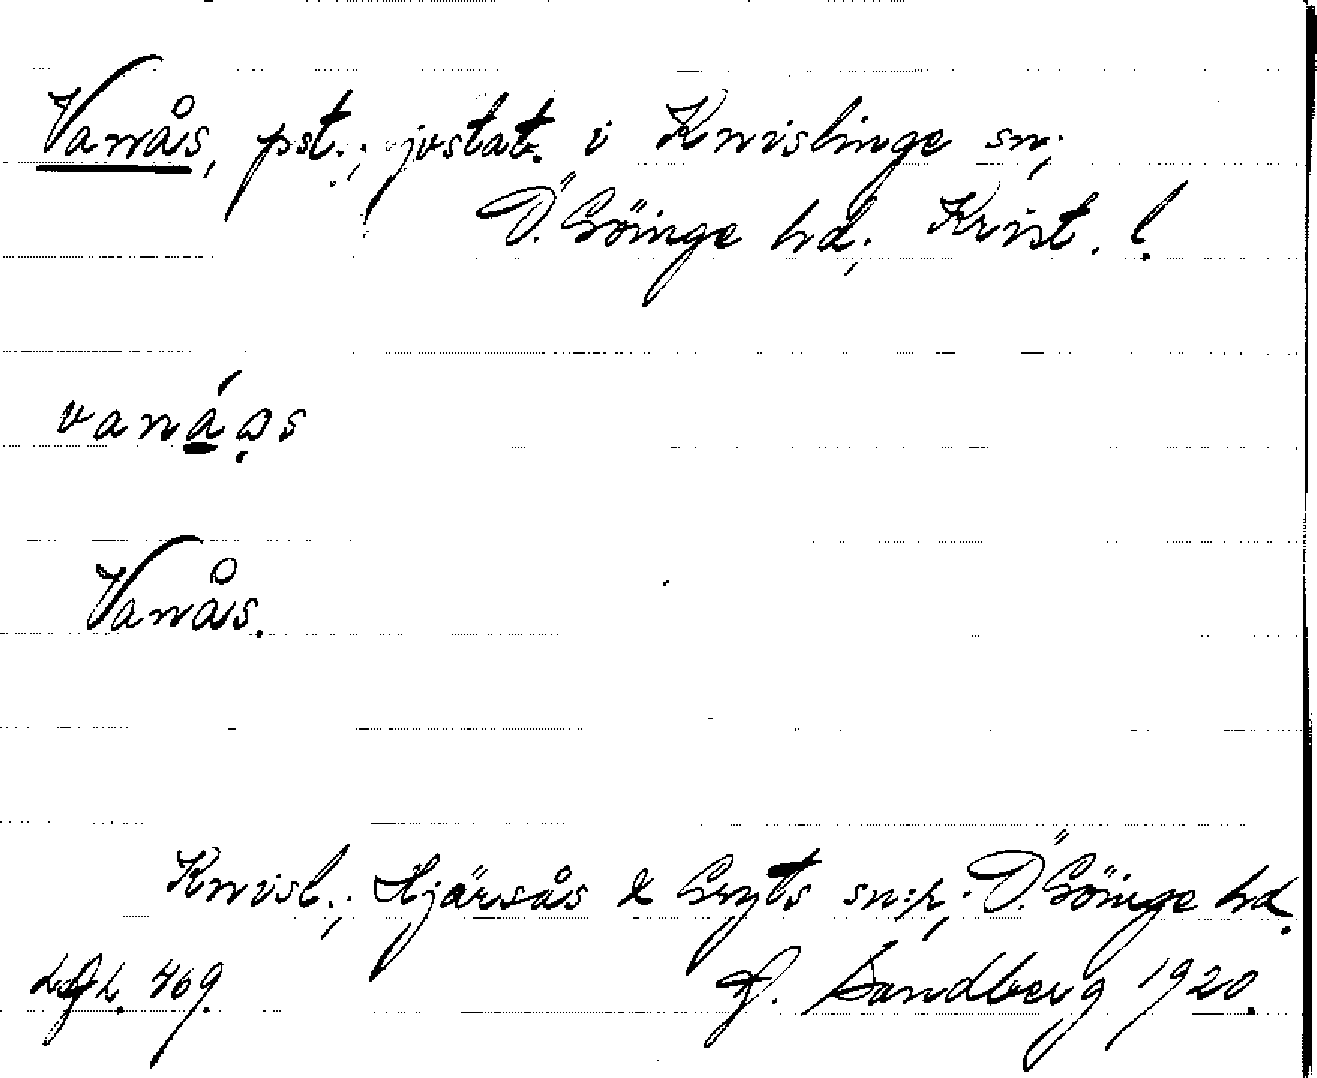 Vanås, pst.; jvstat. i Knislinge sn;
Ö. Göinge hd; Krist. l.
vanáǫs
Vanås.
Knisl.; Hjärsås & Gryts sn:r; Ö. Göinge hd.
469. Sandberg 1920.